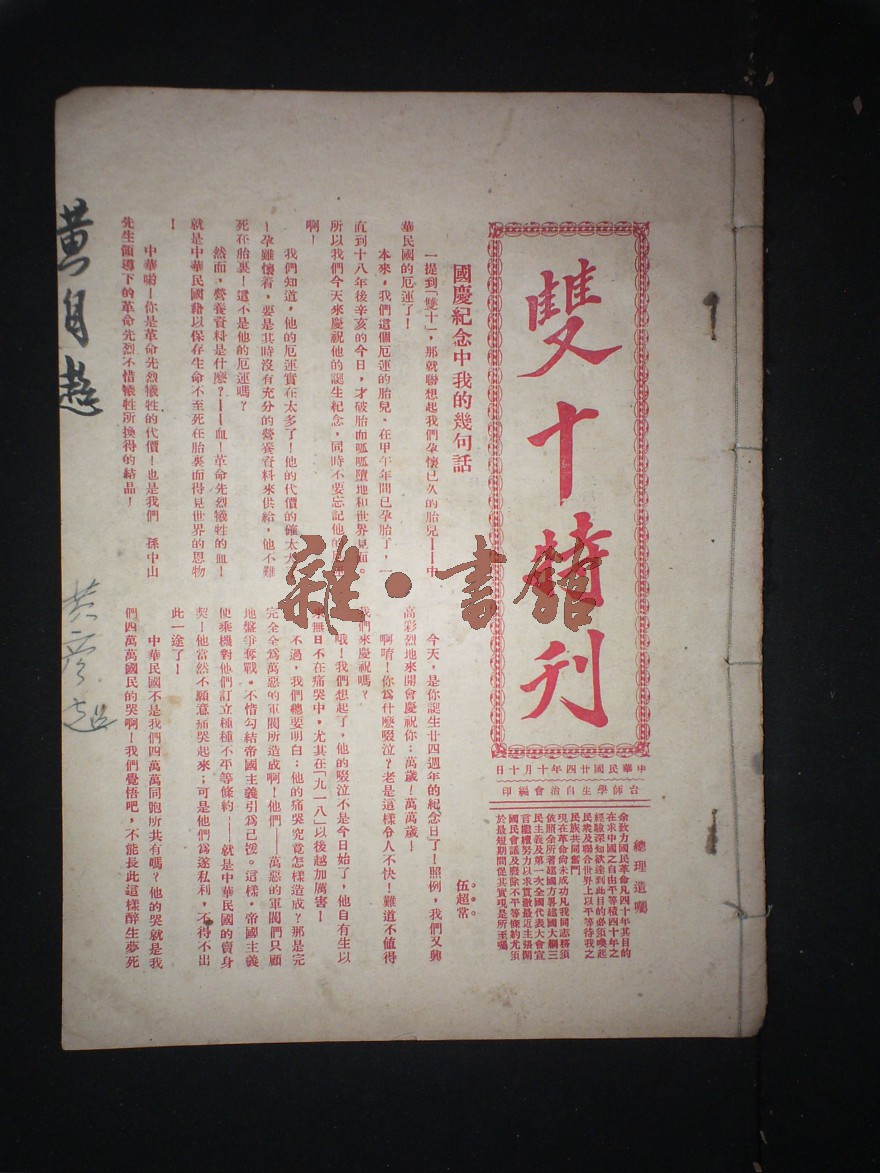 雙十特刊
中華民國廿四年十月十日
台師學生自治會編印
總理遺囑
余致力國民革命凡四十年其目的
在求中國之自由平等積四十年之
經驗深知欲達到此目的必須喚起
民衆及聯合世界上以平等待我之
民族共同奮鬥
現在革命尚未成功凡我同志務須
依照余所著建國方畧建國大綱三
民主義及第一次全國代表大會宣
言繼續努力以求貫徹最近主張開
國民會議及廢除不平等條約尤須
於最短期間促其實現是所至囑
國慶紀念中我的幾句話
伍超常
一提到「雙十」，那就聯想起我們孕懷已久的胎兒——中
華民國的厄運了！
本來，我們這個厄運的胎兒，在甲午年間已孕胎了，一
直到十八年後辛亥的今日，才破胎而呱呱墮地和世界見面。
所以我們今天來慶祝他的誕生紀念，同時不要忘記他的
啊！
我們知道，他的厄運實在太多了！他的代價的確太大
！孕雖懷着，要是其時沒有充分的營養資料來供給，他不難
死在胎裏！這不是他的厄運嗎？
然而，營養資料是什麽？——血！革命先烈犧牲的血！
就是中華民國藉以保存生命不至死在胎裏而得見世界的恩物
！
中華喲！你是革命先烈犧牲的代價！也是我們　孫中山
先生領導下的革命先烈不惜犧牲所換得的結晶！
今天，是你誕生廿四週年的紀念日了！照例，我們又興
高彩烈地來開會慶祝你：萬歲！萬萬歲！
啊唷！你爲什麽啜泣？老是這樣令人不快！難道不值得
我們來慶祝嗎？
哦！我們想起了，他的啜泣不是今日始了，他自有生以
來無日不在痛哭中，尤其在「九一八」以後越加厲害！
不過，我們總要明白：他的痛哭究竟怎樣造成？那是完
完全全爲萬惡的軍閥所造成啊！他們——萬惡的軍閥們只顧
地盤爭奪戰。不惜勾結帝國主義引爲己援。這樣，帝國主義
便乘機對他們訂立種種不平等條約——就是中華民國的賣身
契！他當然不願意痛哭起來；可是他們爲遂私利，不得不出
此一途了！
中華民國不是我們四萬萬同胞所共有嗎？他的哭就是我
們四萬萬國民的哭啊！我們覺悟吧，不能長此這樣醉生夢死
雜·書館
黃月超